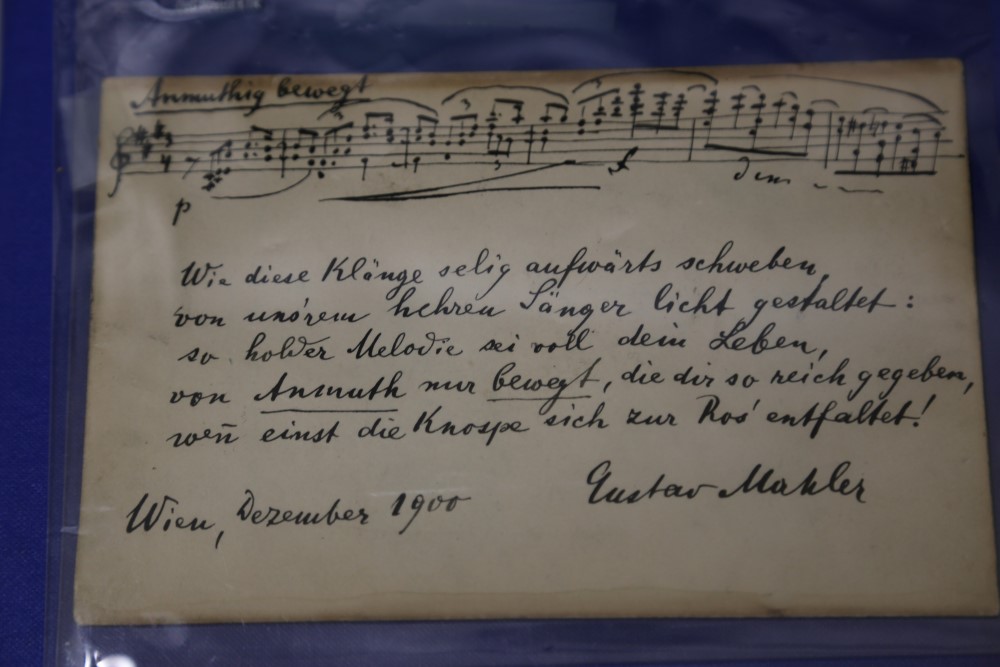 Anmuthig bewegt
p
f
dim
Wie diese Klänge selig aufwärts schweben,
von uns'rem hehren Sänger licht gestaltet:
so holder Melodie sei voll dein Leben,
von Anmuth nur bewegt, die dir so reich gegeben,
wen̄ einst die Knospe sich zur Ros' entfaltet!
Gustav Mahler
Wien, Dezember 1900